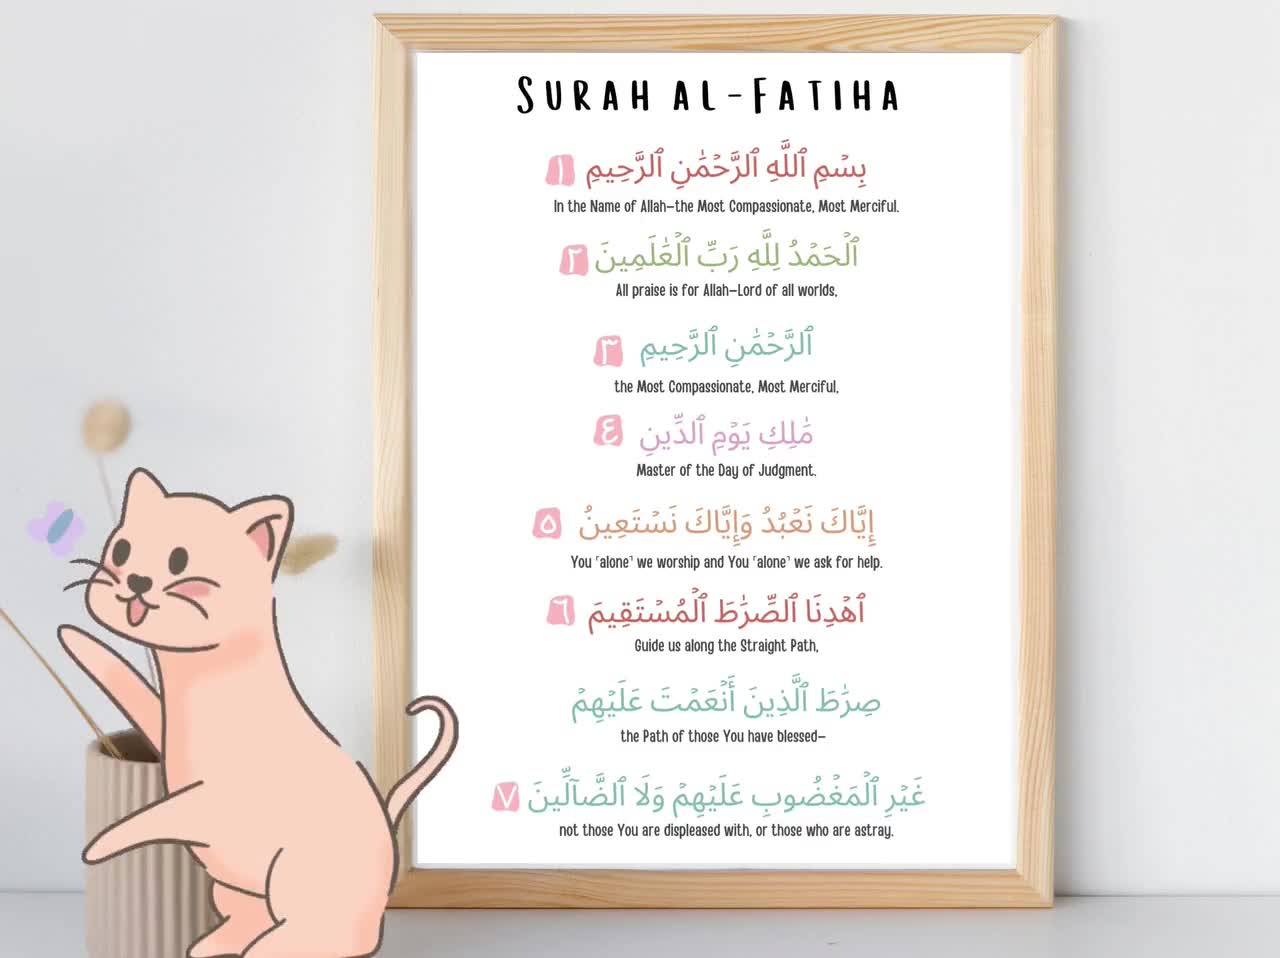 SURAH AL-FATIHA
بِسۡمِ ٱللَّهِ ٱلرَّحۡمَٰنِ ٱلرَّحِيمِ ١
In the Name of Allah—the Most Compassionate, Most Merciful.
ٱلۡحَمۡدُ لِلَّهِ رَبِّ ٱلۡعَٰلَمِينَ ٢
All praise is for Allah—Lord of all worlds,
ٱلرَّحۡمَٰنِ ٱلرَّحِيمِ ٣
the Most Compassionate, Most Merciful,
مَٰلِكِ يَوۡمِ ٱلدِّينِ ٤
Master of the Day of Judgment.
إِيَّاكَ نَعۡبُدُ وَإِيَّاكَ نَسۡتَعِينُ ٥
You ˹alone˺ we worship and You ˹alone˺ we ask for help.
ٱهۡدِنَا ٱلصِّرَٰطَ ٱلۡمُسۡتَقِيمَ ٦
Guide us along the Straight Path,
صِرَٰطَ ٱلَّذِينَ أَنۡعَمۡتَ عَلَيۡهِمۡ
the Path of those You have blessed—
غَيۡرِ ٱلۡمَغۡضُوبِ عَلَيۡهِمۡ وَلَا ٱلضَّآلِّينَ ٧
not those You are displeased with, or those who are astray.